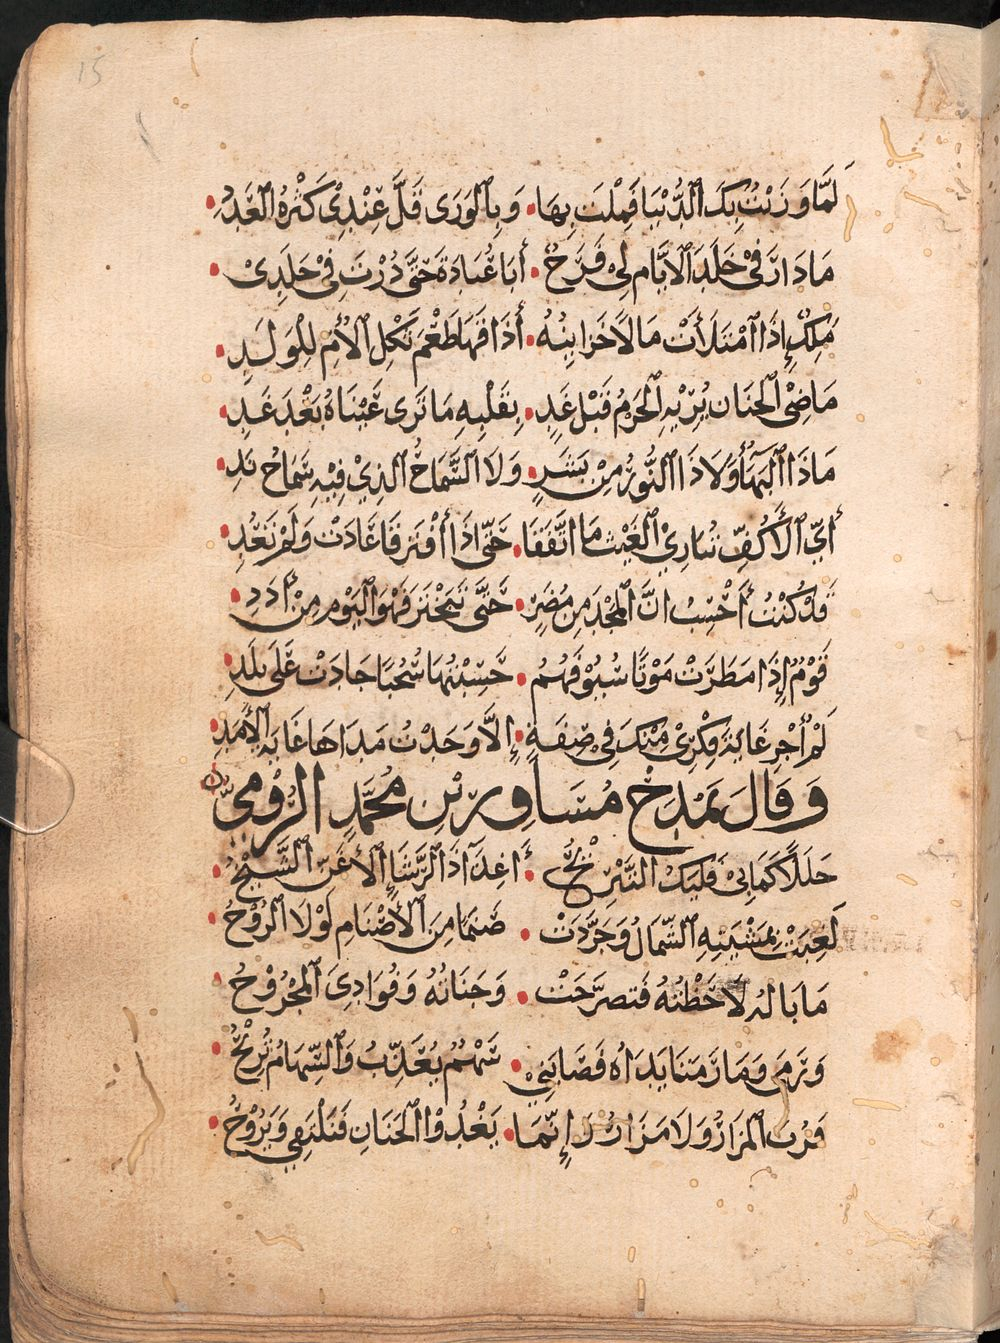 15
لَمَّا وَزَنْتُ بِكَ ٱلدُّنْيَا فَمِلْتَ بِهَا • وَبِٱلْوَرَى قَلَّ عِنْدِيْ كَثْرَةُ ٱلْعَدَدِ •
مَا دَارَ فِيْ خَلَدِ ٱلْأَيَّامِ لِيْ فَرَحٌ • أَبَا عُبَادَةَ حَتَّى دُرْتَ فِيْ خَلَدِيْ •
مَلِكٌ إِذَا ٱمْتَلَأَتْ مَالًا خَزَايِنُهُ • أَذَاقَهَا طَعْمَ ثَكْلِ ٱلْأُمِّ لِلْوَلَدِ •
مَاضِيْ ٱلْجَنَانِ يُرِيْهِ ٱلْحَزْمُ قَبْلَ غَدٍ • بِقَلْبِهِ مَا تَرَى عَيْنَاهُ بَعْدَ غَدِ •
مَا ذَا ٱلْبَهَآءُ وَلَا ذَا ٱلنُّوْرُ مِنْ بَشَرٍ • وَلَا ٱلسَّمَاحُ ٱلَّذِيْ فِيْهِ سَمَاحُ يَدِ •
أَيُّ ٱلْأَكُفِّ تُبَارِيْ ٱلْغَيْثَ مَا ٱتَّفَقَا • حَتَّى إِذَا ٱفْتَرَقَا عَادَتْ وَلَمْ تَعُدِ •
قَدْ كُنْتُ أَحْسِبُ انَّ ٱلْمَجْدَ مِنْ مُضَرٍ • حَتَّى تَبَحْتَرَ فَهْوَ ٱلْيَوْمَ مِنْ أُدَدِ •
قَوْمٌ إِذَا مَطَرَتْ مَوْتًا سُيُوْفُهُمُ • حَسِبْتُهَا سُحُبًا جَادَتْ عَلَى بَلَدِ •
لَمْ أُجْرِ غَايَةَ فِكْرِيْ مِنْكَ فِيْ صِفَةٍ • إِلَّا وَجَدْتُ مَدَاهَا غَايَةَ ٱلْأَمَدِ
وَقَالَ يَمْدَحُ مُسَاوِرَ بْنَ مُحَمَّدٍ الرُّوْمِيَّ
جَلَلًا كَمَا بِيْ فَلْيَكُ التَّبْرِيْحُ • أَغِذَآءُ ذَا ٱلرَّشَاءِ ٱلْأَغَنِّ ٱلشِّيْحُ •
لَعِبَتْ بِمَشْيَتِهِ ٱلشَّمَالُ وَجَرَّدَتْ • صَنَمًا مِنَ ٱلْأَصْنَامِ لَوْلَا ٱلرُّوْحُ •
مَا بَالُهُ لَاحَظْتُهُ فَتَضَرَّجَتْ • وَجَنَاتُهُ وَفُوَادِيَ ٱلْمَجْرُوْحُ •
وَرَمَى وَمَا رَمَتَا يَدَاهُ فَصَابَنِيْ • سَهْمٌ يُعَذِّبُ وَٱلسِّهَامُ تُرِيْحُ •
قَرُبَ ٱلْمَزَارُ وَلَا مَزَارُ وَإِنَّمَا • يَغْدُوْ ٱلْجَنَانُ فَنَلْتَقِي وَيَرُوْحُ •